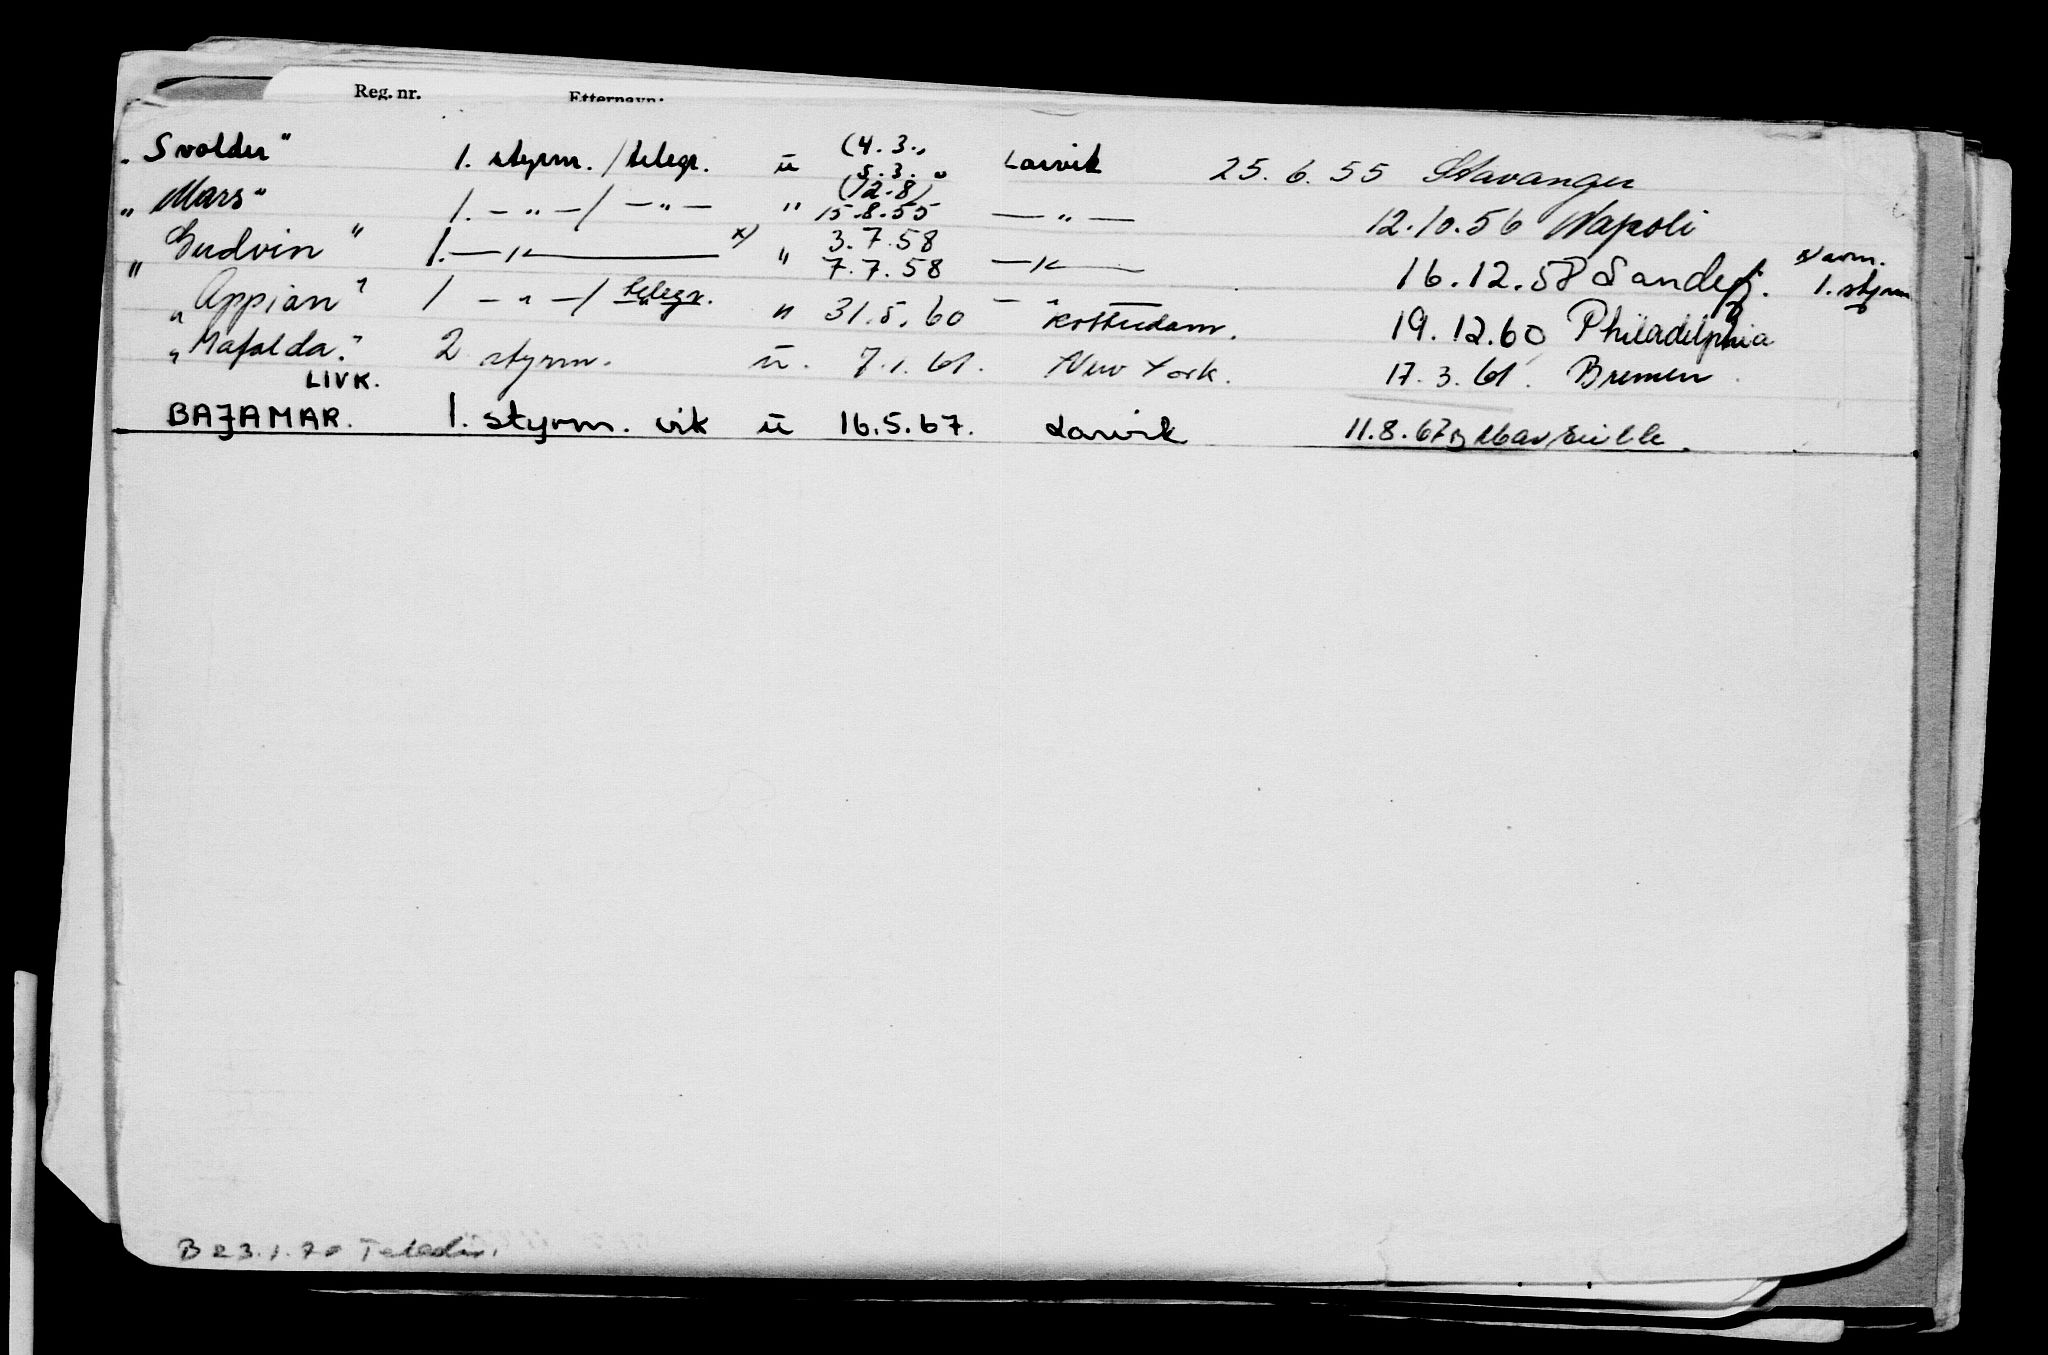 Reg. nr. Etternavn:
„Svolder" 1. styrm. / telegr. ü (4.3., 5.3.„ Larvik 25.6.55 Stavanger
„Mars" 1. — " — / — " — " (12.8) 15.8.55 — " — 12.10.56 Napoli
„Gudvin" 1. — " — x) " 3.7.58 7.7.58 — " — 16.12.58 Sandefj. x) avm. 1. styrm
„Appian" 1 — " — / telegr. " 31.5.60 Rotterdam. 19.12.60 Philadelphia
„Mafalda." 2 styrm. ü. 7.1.61. New York. 17.3.61. Bremen
LIVK.
BAJAMAR. 1. styrm. vik ü 16.5.67. Larvik 11.8.67 Marseille.
B 23.1.70